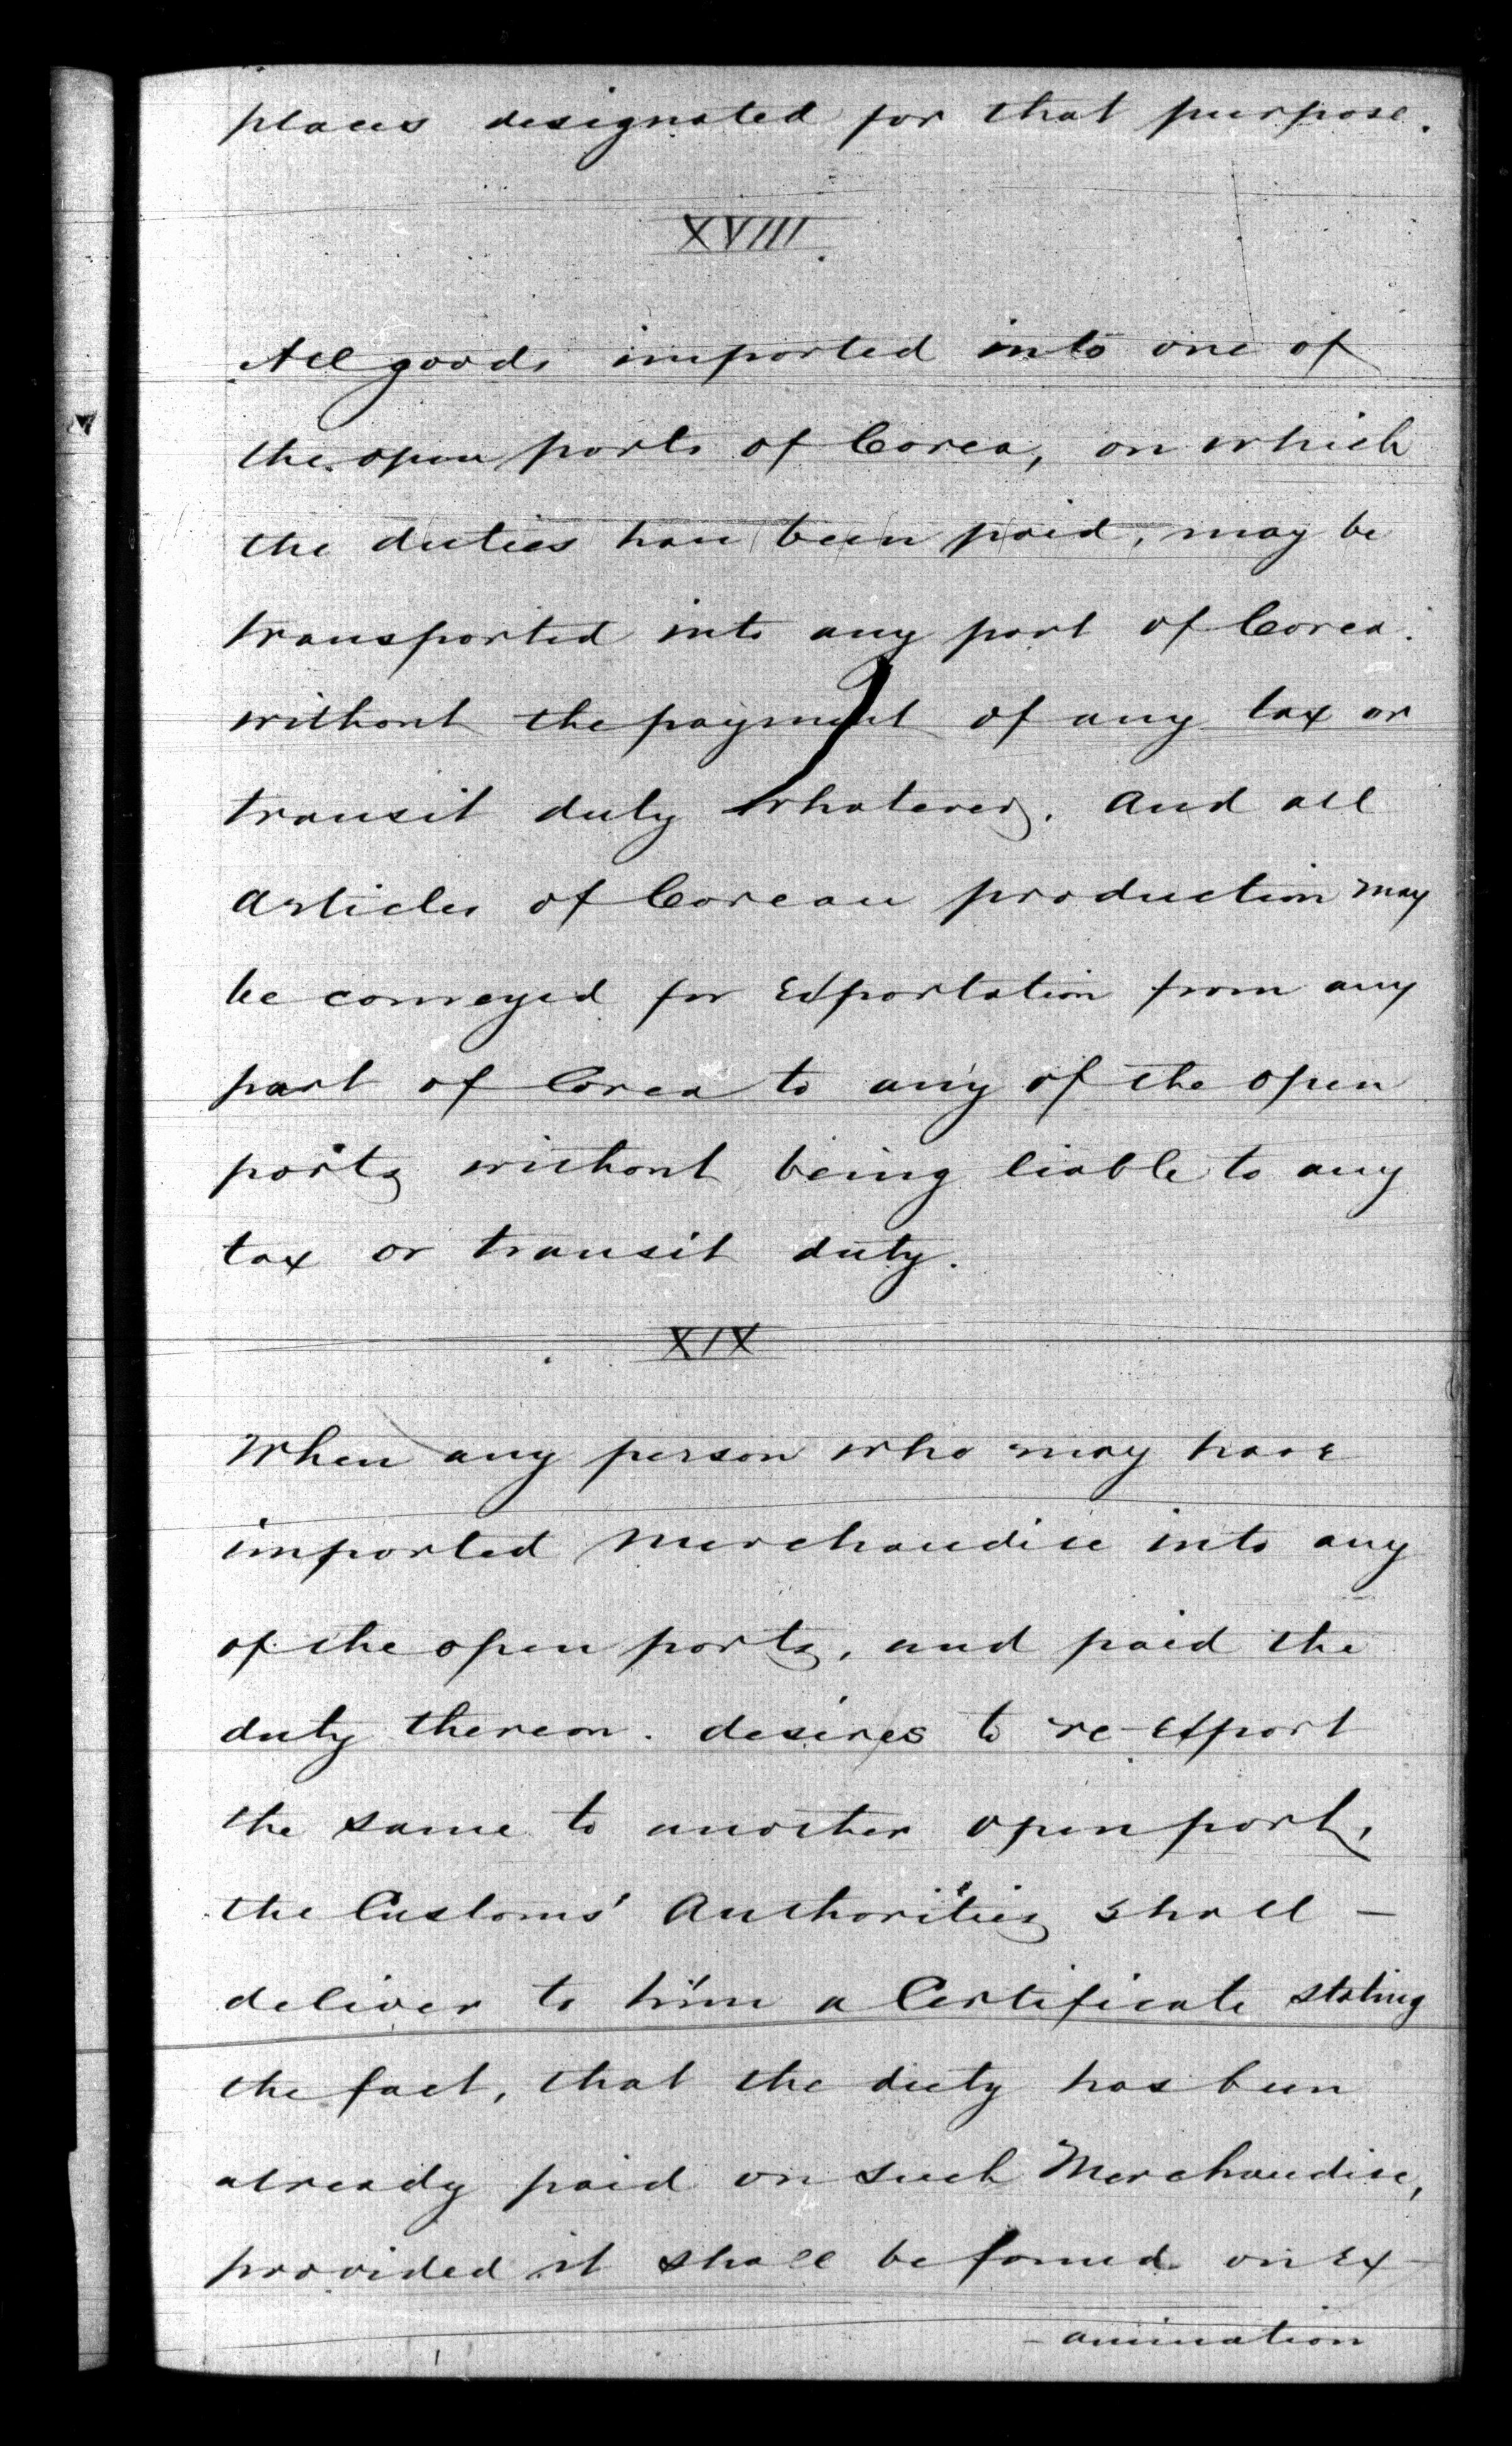 places designated for that purpose.
XVIII.
All goods imported into one of
the open ports of Corea, on which
the duties have been paid, may be
transported into any part of Corea.
without the payment of any tax or
transit duty whatever. And all
Articles of Corean production may
be conveyed for Exportation from any
part of Corea to any of the open
ports without being liable to any
tax or transit duty.
XIX
When any person who may have
imported Merchandise into any
of the open ports, and paid the
duty thereon. desires to re-Export
the same to another open port,
the Customs' Authorities shall –
deliver to him a Certificate stating
the fact, that the duty has been
already paid on such Merchandise,
provided it shall be found on Ex-
-amination